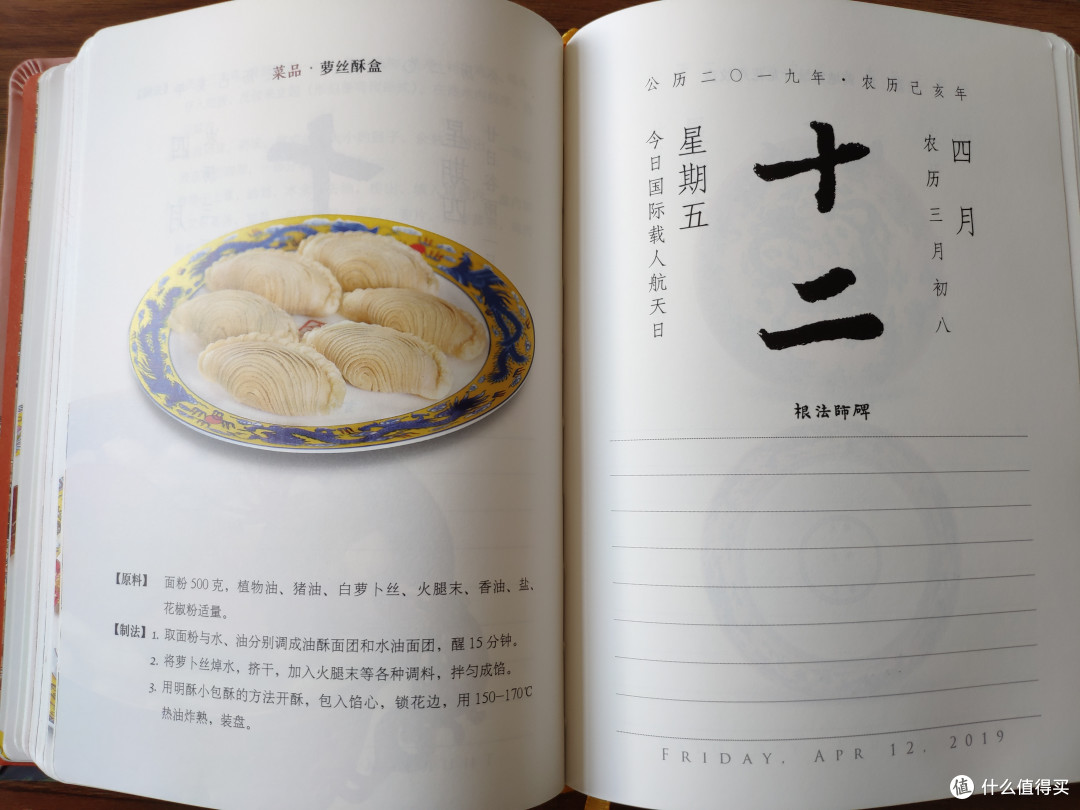 菜品·萝丝酥盒
【原料】 面粉500克，植物油、猪油、白萝卜丝、火腿末、香油、盐、
花椒粉适量。
【制法】1. 取面粉与水、油分别调成油酥面团和水油面团，醒15分钟。
2. 将萝卜丝焯水，挤干，加入火腿末等各种调料，拌匀成馅。
3. 用明酥小包酥的方法开酥，包入馅心，锁花边，用150–170℃
热油炸熟，装盘。
公历二〇一九年·农历己亥年
四月
农历三月初八
十二
星期五
今日国际载人航天日
根法師碑
FRIDAY, APR 12, 2019
值 什么值得买